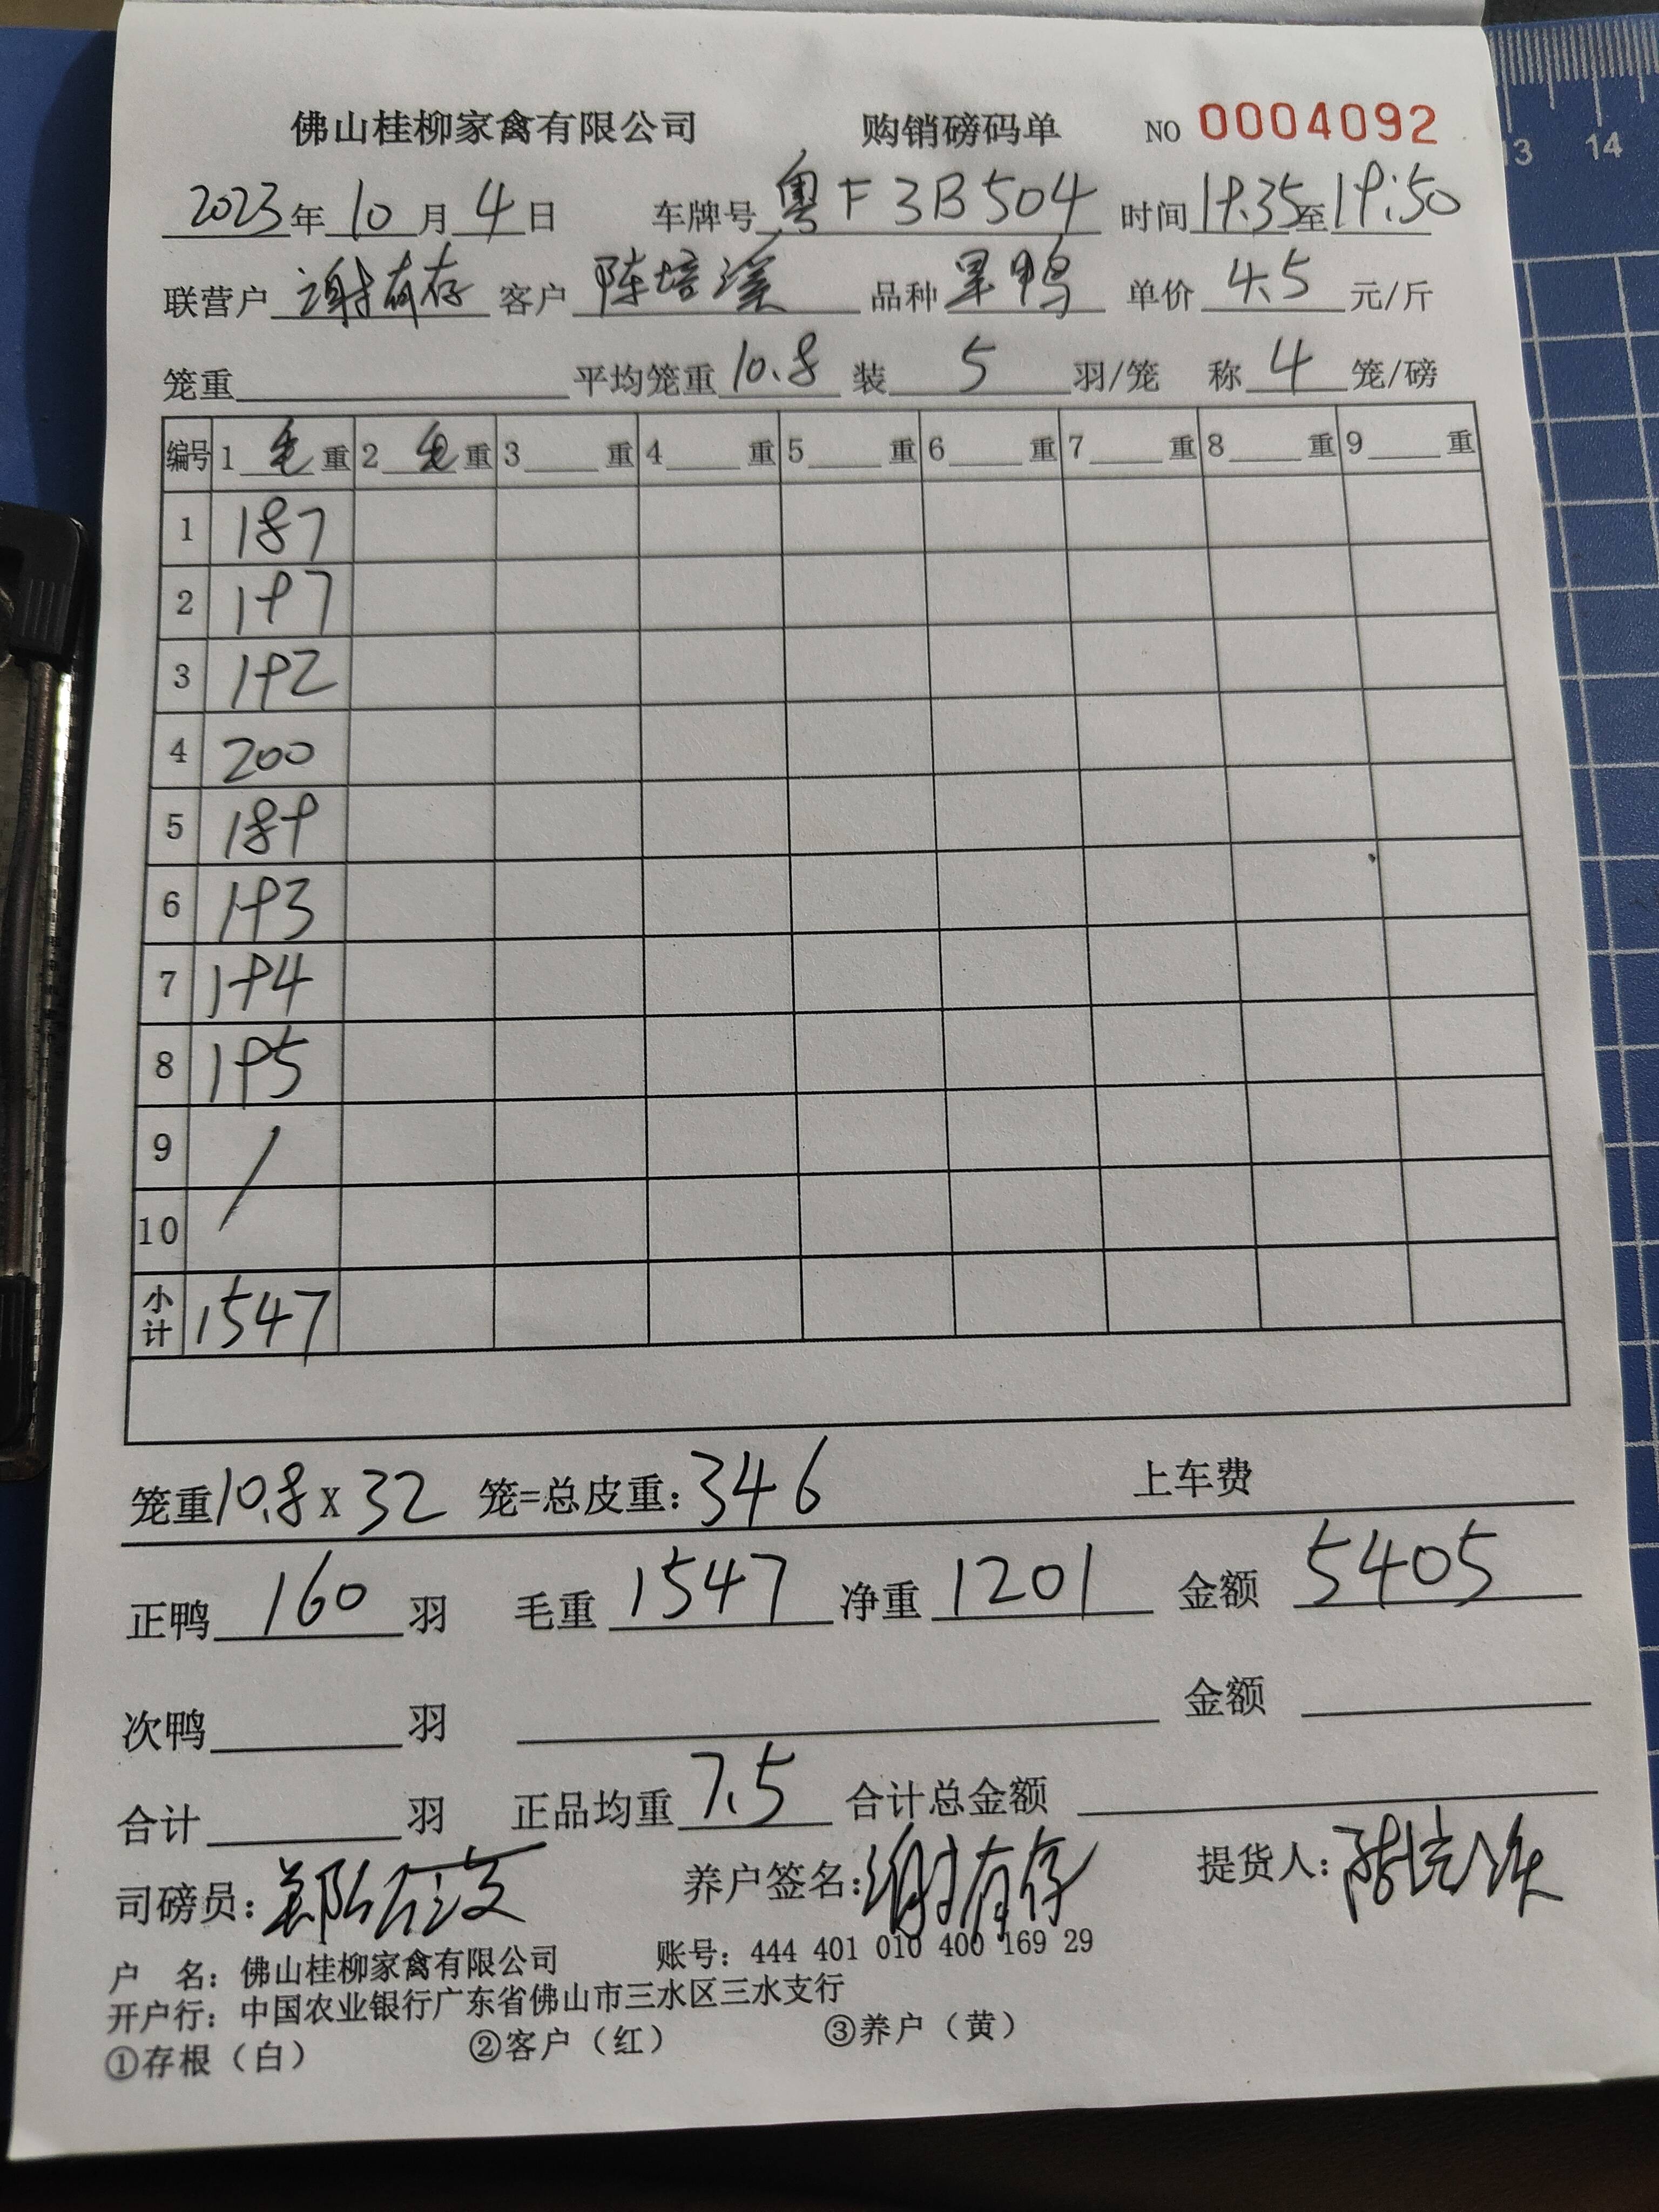 佛山桂柳家禽有限公司 购销磅码单 NO 0004092
2023年10月4日 车牌号粤F3B504 时间19.35至19:50
联营户谢有存 客户陈培溪 品种果鸭 单价4.5元/斤
笼重 平均笼重10.8 装5羽/笼 称4笼/磅
编号 1毛重 2毛重 3 重 4 重 5 重 6 重 7 重 8 重 9 重
1 187
2 197
3 192
4 200
5 189
6 193
7 194
8 195
9 /
10
小计 1547
笼重10.8x32 笼=总皮重:346 上车费
正鸭160羽 毛重1547 净重1201 金额5405
次鸭 羽 金额
合计 羽 正品均重7.5 合计总金额
司磅员: 养户签名:谢有存 提货人:
户 名: 佛山桂柳家禽有限公司 账号: 444 401 010 400 169 29
开户行: 中国农业银行广东省佛山市三水区三水支行
①存根(白) ②客户(红) ③养户(黄)
13 14